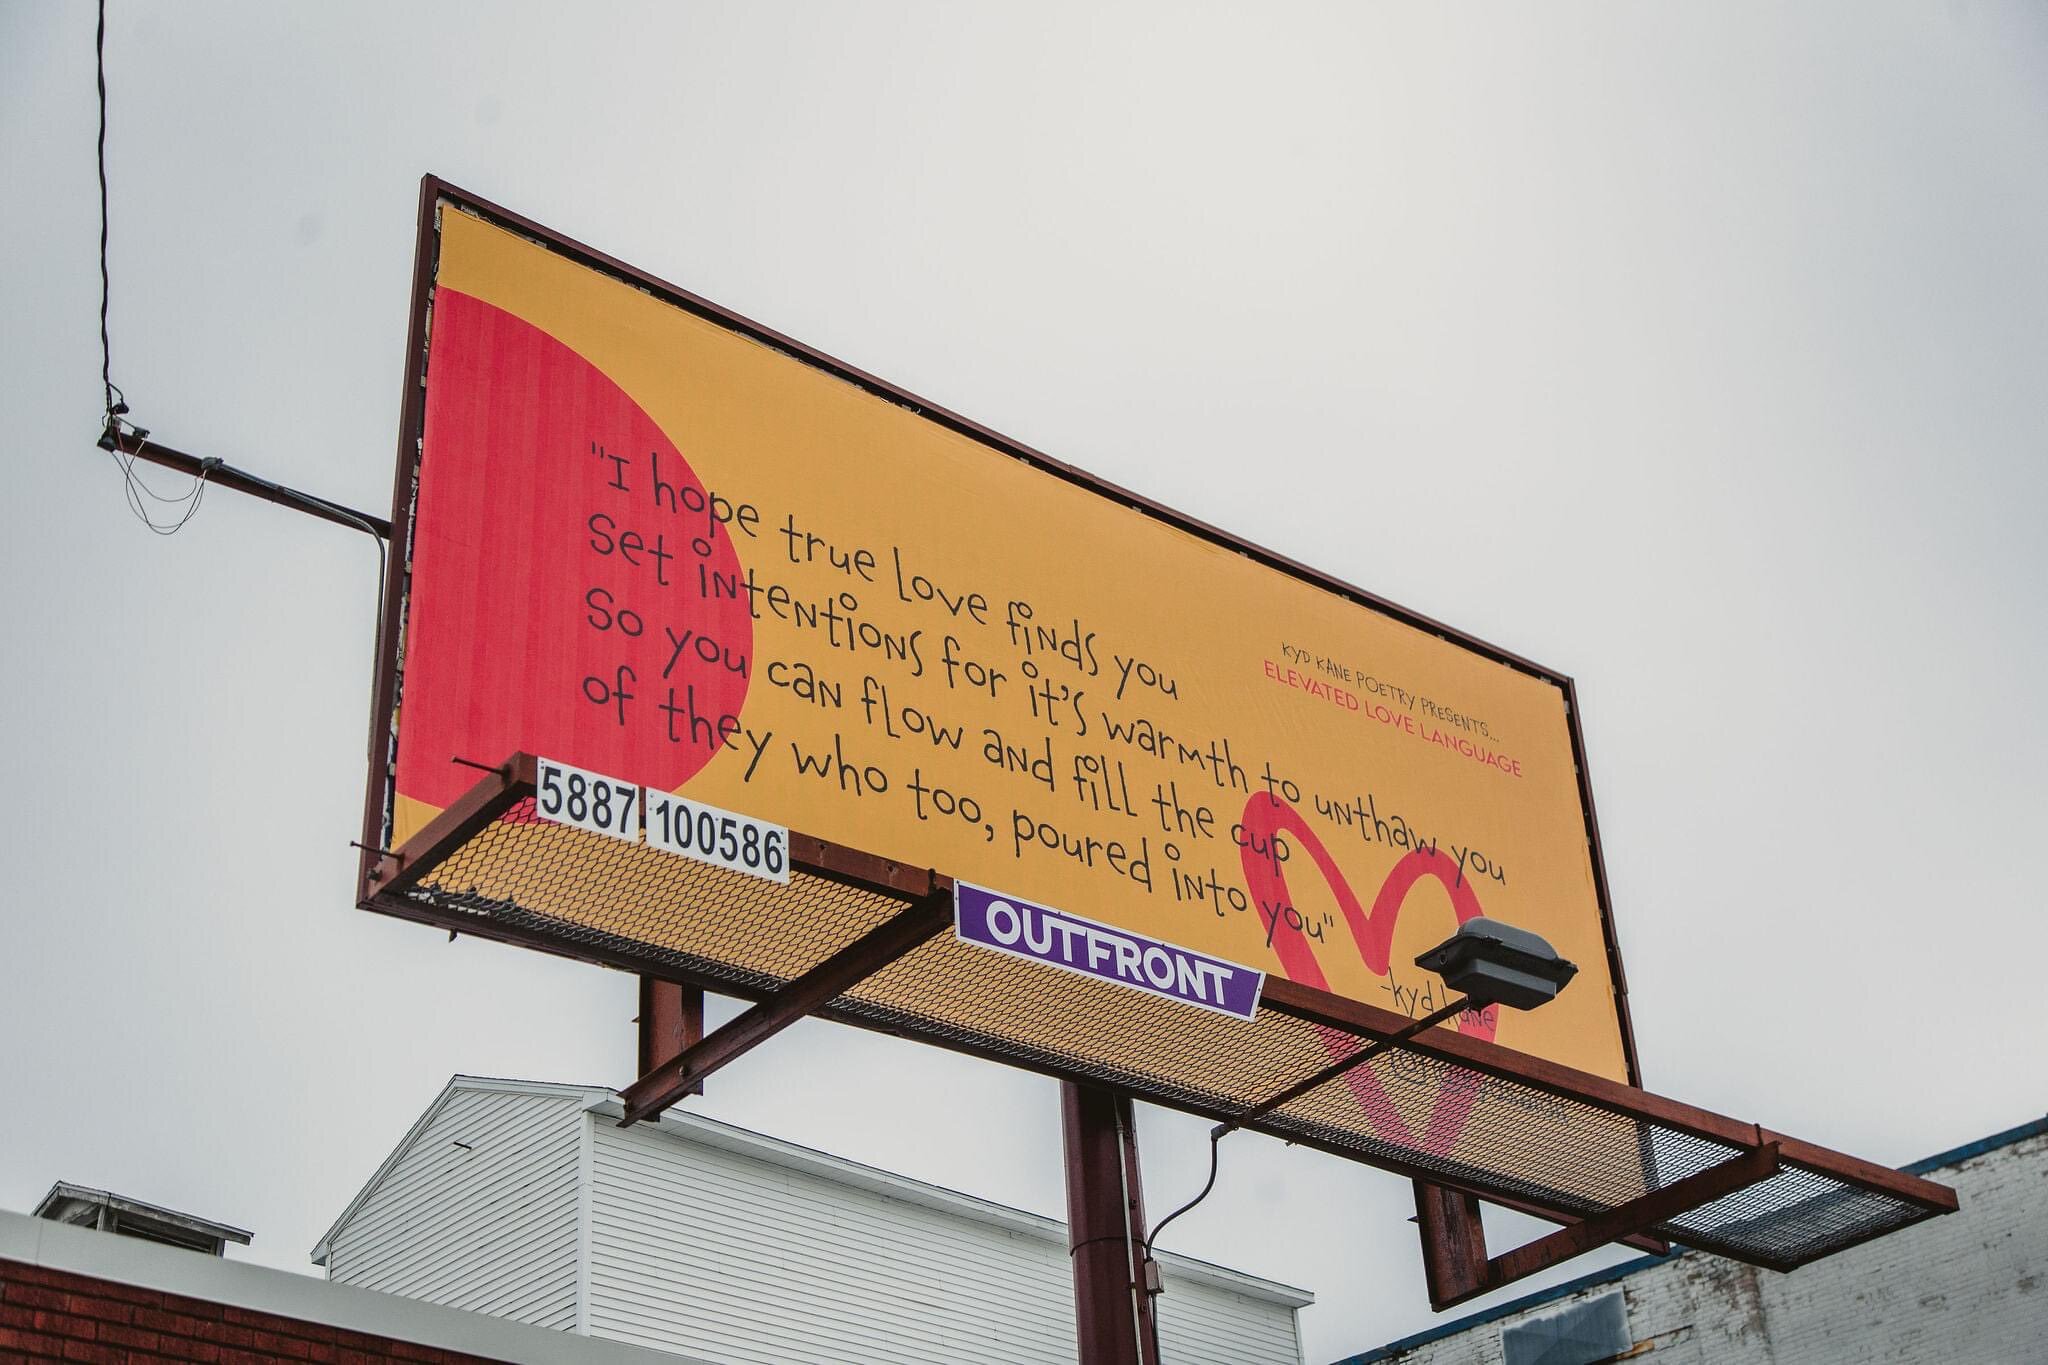 "I hope true love finds you
Set intentions for it's warmth to unthaw you
So you can flow and fill the cup
of they who too, poured into you"
-kyd kane
KYD KANE POETRY PRESENTS...
ELEVATED LOVE LANGUAGE
5887 100586
OUTFRONT